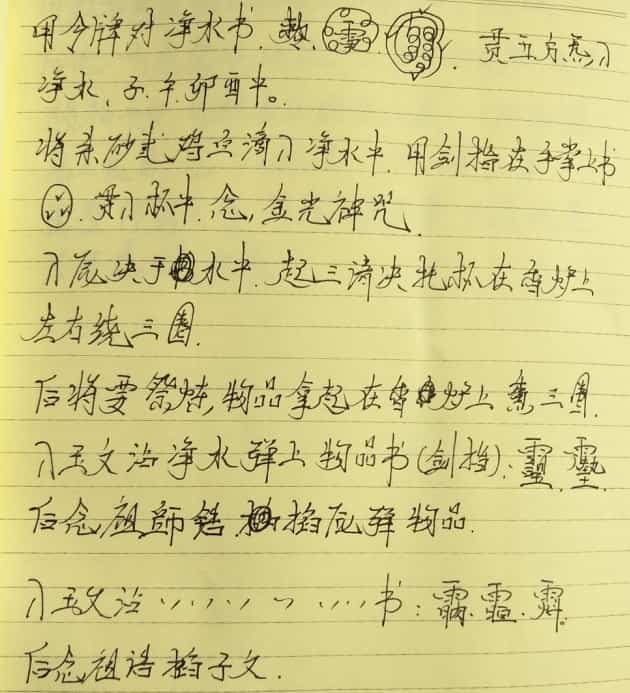 用令牌对净水书.敕. 贯五方炁入
净水、子.午.卯酉中。
将朱砂 鸡血滴入净水中.用剑指在手掌上书
.贯入杯中.念,金光神咒.
入 决于水中.起三清决托杯在香炉上
左右绕三圈.
后将要祭炼,物品拿起在香炉上熏三圈.
入玉文沾净水弹上物品书(剑指):
后念祖师 指 弹物品.
入玉文沾、、、、、、、、书:
后念祖 指子文.